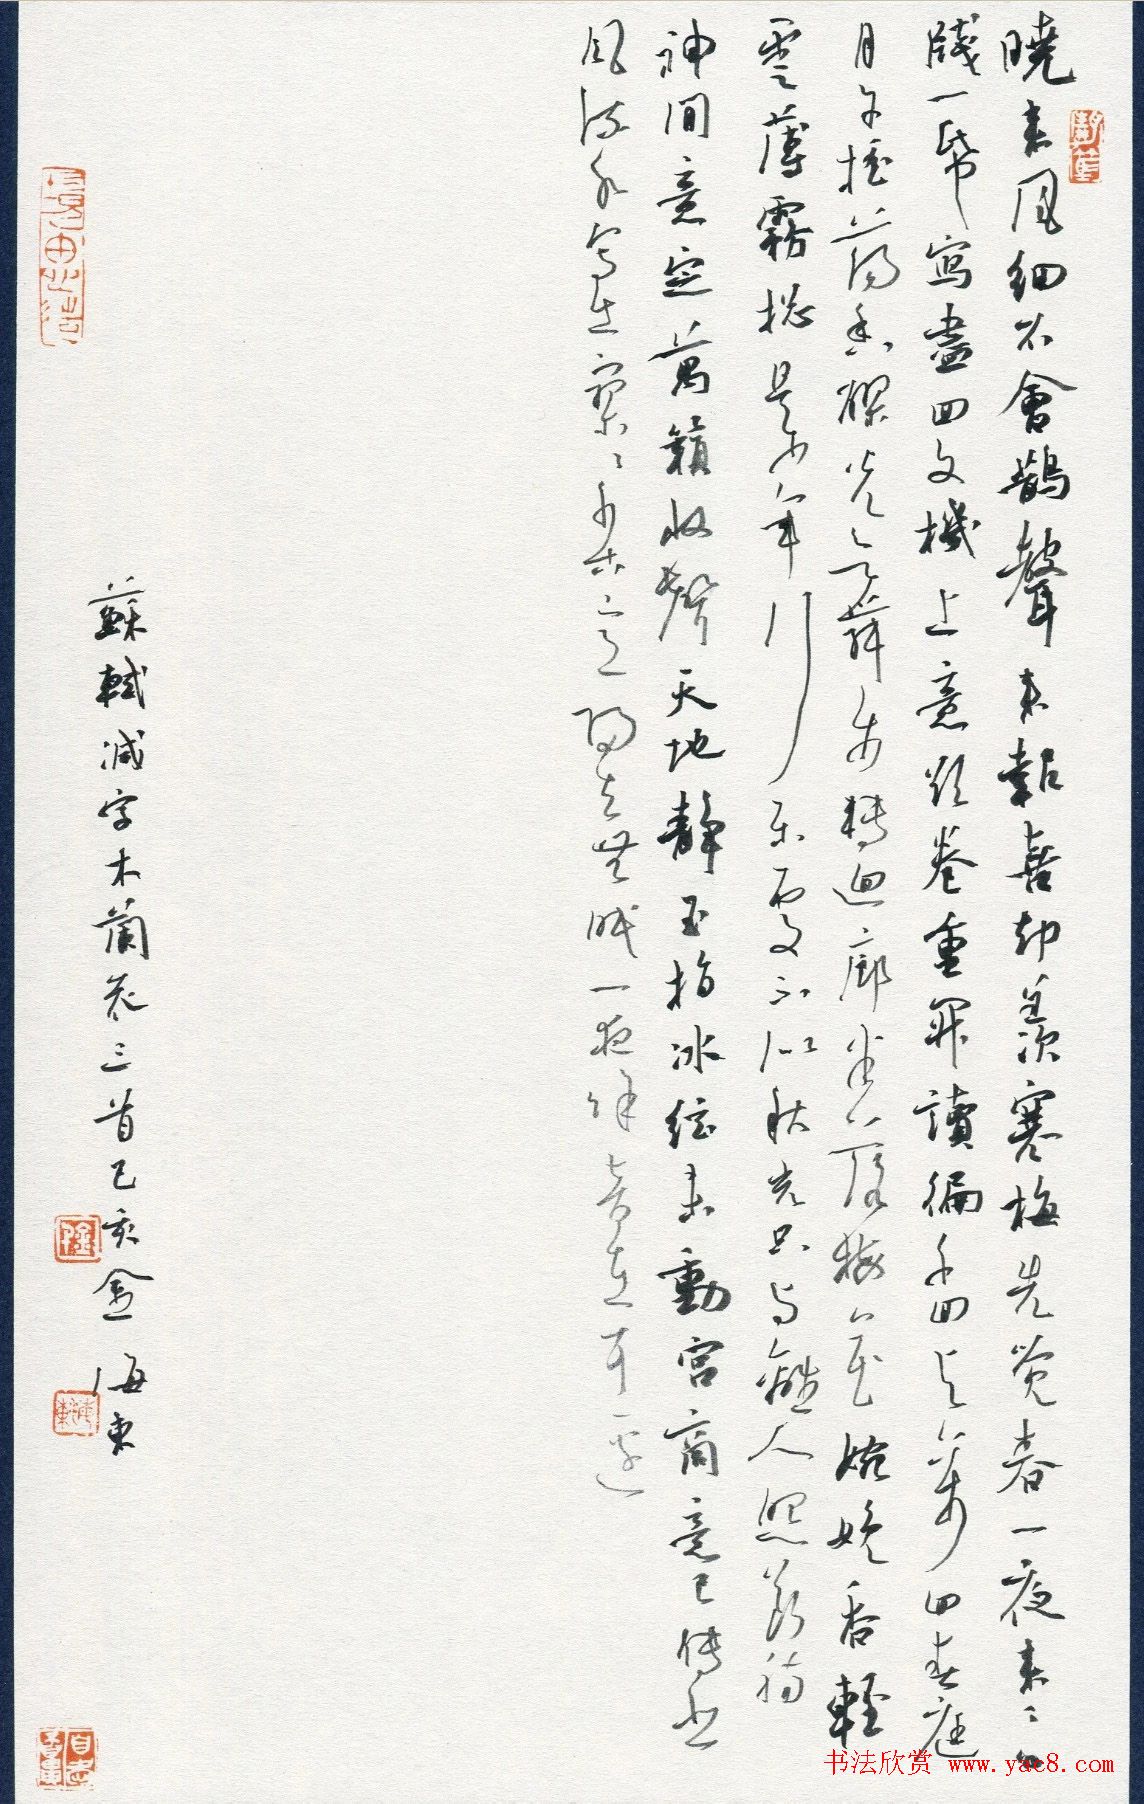 曉來風細不會鵲聲來報喜却羨寒梅先覺春一夜來香
牋一帋寫盡回文機上意欲卷重開讀徧千回與萬回春庭
月午摇蕩香醪光欲舞步轉迴廊半落梅花婉娩香輕
雲薄霧摠是少年行樂處不似秋光只與離人照斷腸
神閒意定萬籟收聲天地靜玉指冰絃未動宮商意已傳悲
風流水寫出寥〻千古意歸去無眠一夜餘音在耳邊
蘇軾減字木蘭花三首己亥金海東
书法欣赏 www.yac8.com